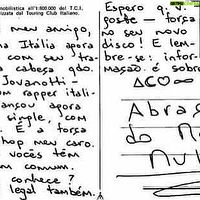 mobilistica all'1:800.000 del T.C.I.
izzata del Touring Club Italiano.
meu amigo,
na Itália agora
com seu tra
a cabeça são.
Jovanotti -
m rapper itali-
ançou agora
simple, com
É a força
hop meu caro.
vocês têm
m comum.
conhece?
legal também.
Espero q.
poste - força
no seu novo
disco! E lem-
bre-se: infor-
mação é sobre
Abraç
do Ma
Nu